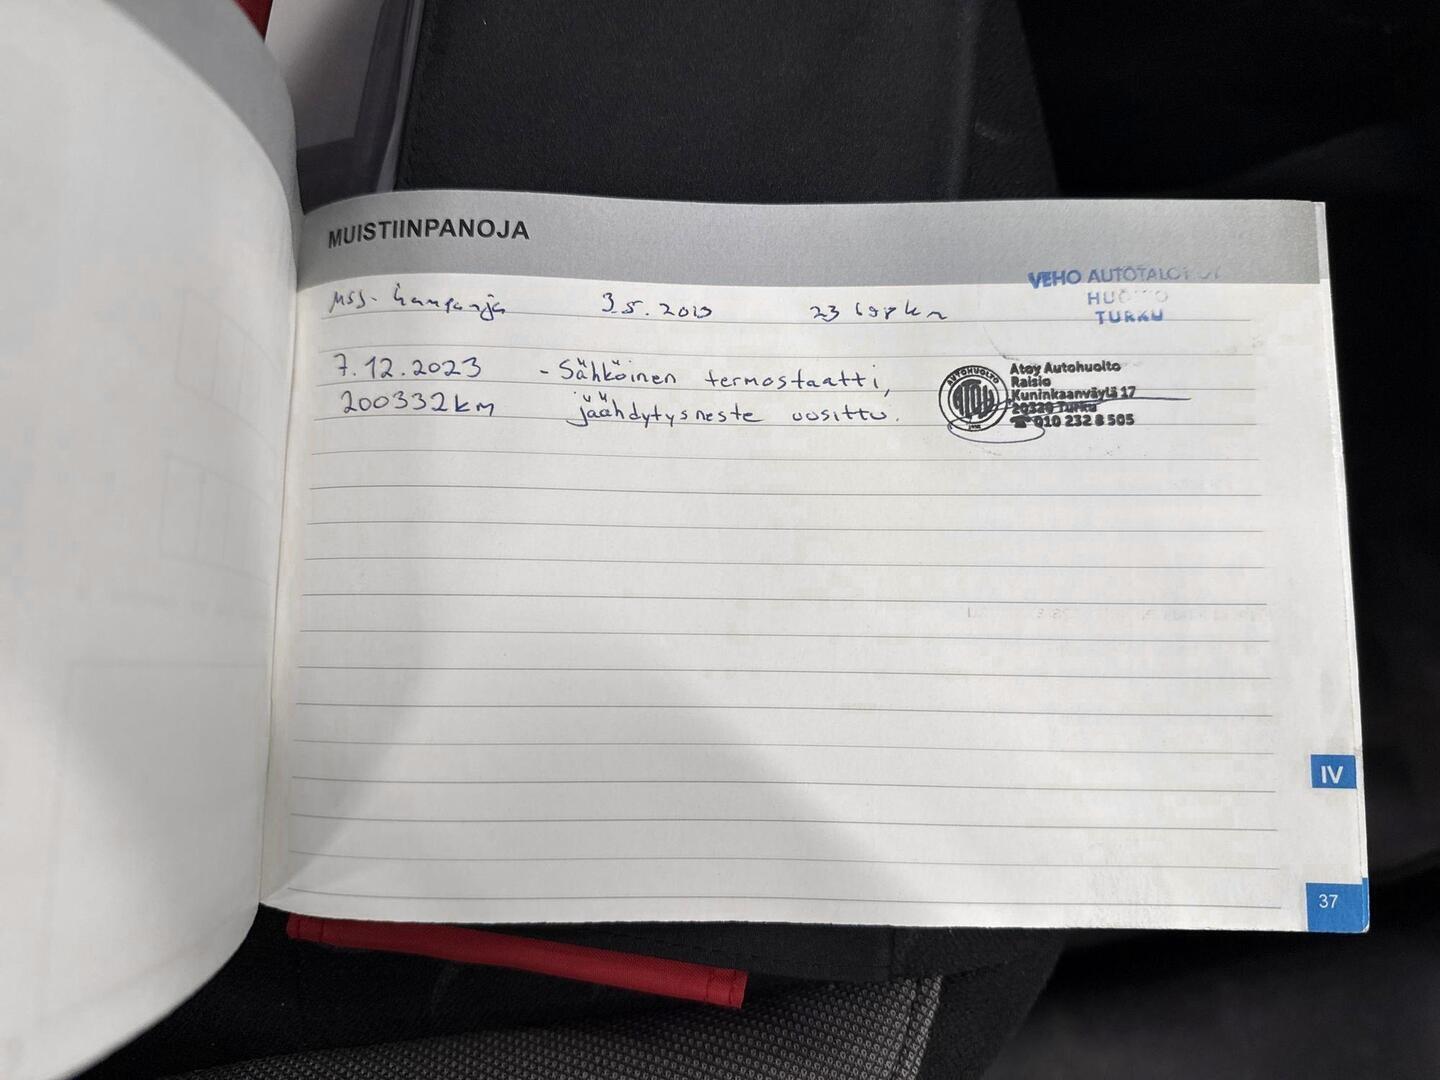 MUISTIINPANOJA
VEHO AUTOTALOT OY
HUOLTO
TURKU
kampanja 3.5.2013 23 km
7.12.2023 - Sähköinen termostaatti,
200332km jäähdytysneste uusittu.
AUTOHUOLTO
ATOY
Atoy Autohuolto
Raisio
Kuninkaanväylä 17
20320 Turku
☎ 010 232 8 505
IV
37